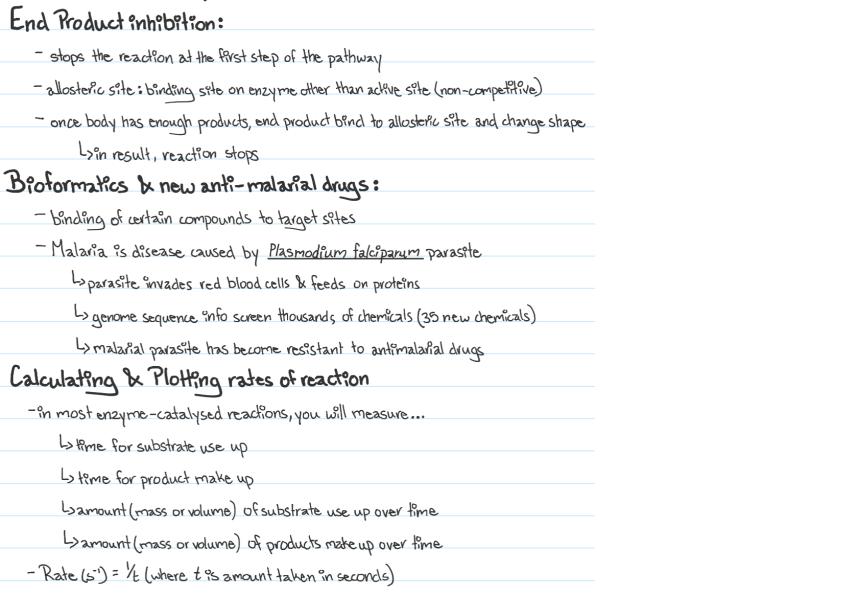 End Product inhibition:
- stops the reaction at the first step of the pathway
- allosteric site: binding site on enzyme other than active site (non-competitive)
- once body has enough products, end product bind to allosteric site and change shape
↳ in result, reaction stops
Bioformatics & new anti-malarial drugs:
- binding of certain compounds to target sites
- Malaria is disease caused by Plasmodium falciparum parasite
↳ parasite invades red blood cells & feeds on proteins
↳ genome sequence info screen thousands of chemicals (35 new chemicals)
↳ malarial parasite has become resistant to antimalarial drugs
Calculating & Plotting rates of reaction
- in most enzyme-catalysed reactions, you will measure...
↳ time for substrate use up
↳ time for product make up
↳ amount (mass or volume) of substrate use up over time
↳ amount (mass or volume) of products make up over time
- Rate (s⁻¹) = 1/t (where t is amount taken in seconds)